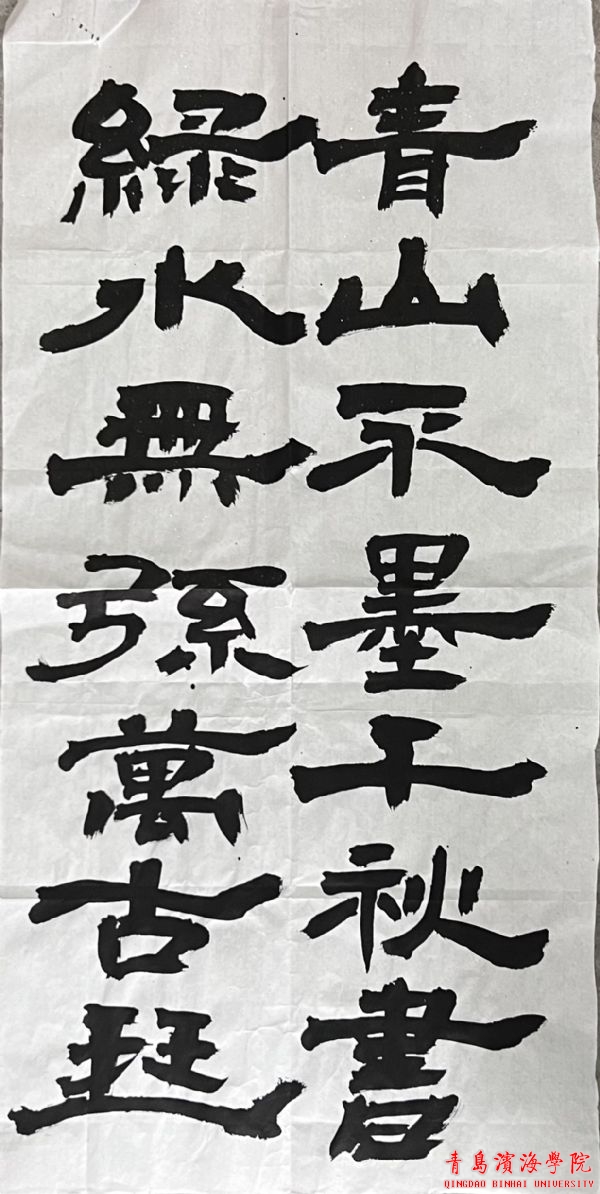 青山不墨千秋書
綠水無弦萬古琴
青島濱海學院
QINGDAO BINHAI UNIVERSITY